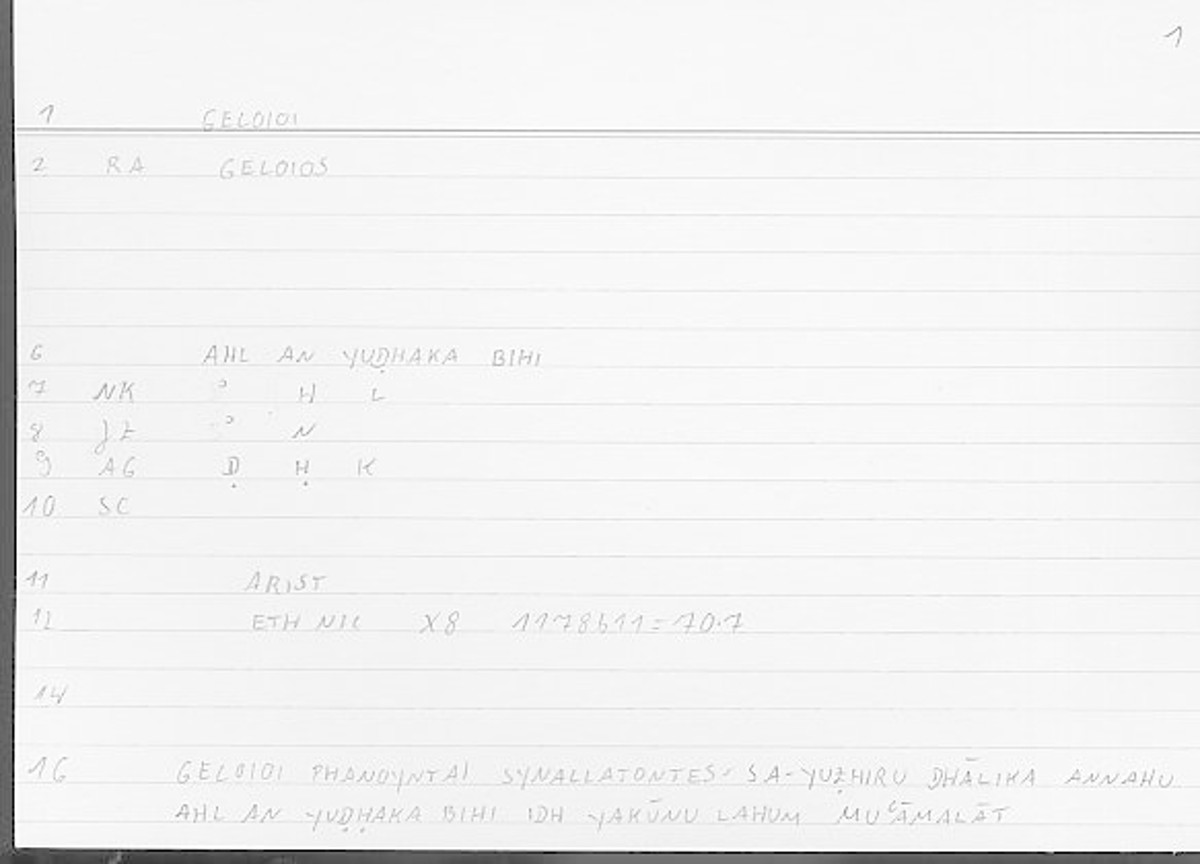 1
1 GELOIOI
2 RA GELOIOS
6 AHL AN YUḌHAKA BIHI
7 NK ʾ H L
8 JZ ʾ N
9 AG Ḍ Ḥ K
10 SC
11 ARIST
12 ETH NIC X8 1178b11=70.7
14
16 GELOIOI PHANOYNTAI SYNALLATONTES· SA-YUẒHIRU DHĀLIKA ANNAHU
AHL AN YUḌḤAKA BIHI IDH YAKŪNU LAHUM MUʿĀMALĀT